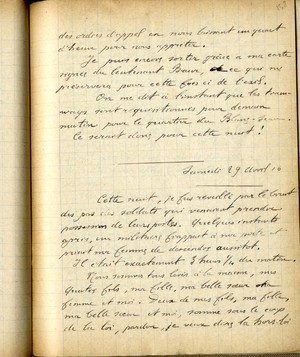 des ordres d'appel en nous laissant un quart
d'heure pour nous apprêter.
Je puis encore sortir grâce à ma carte
signée du lieutenant Bauer, et ce que ne
préservera pour cette fois-ci de l'exil.
On me dit à l'instant que les tramways
sont réquisitionnés pour demain
matin pour le quartier du
Ce serait donc pour cette nuit !
Samedi 29 Avril 16
Cette nuit, je fus réveillé par le bruit
des pas des soldats qui venaient prendre
possession de leurs postes. Quelques instants
après, un militaire frappait à ma porte et
priait ma femme de descendre aussitôt.
Il était exactement 3 heures ¼ du matin.
Nous sommes tous levés à la maison, mes
quatre fils, ma fille, ma belle sœur ma
femme et moi. Deux de mes fils, ma fille,
ma belle sœur et moi, sommes sous le coup
de la loi, pardon, je veux dire la hors-loi